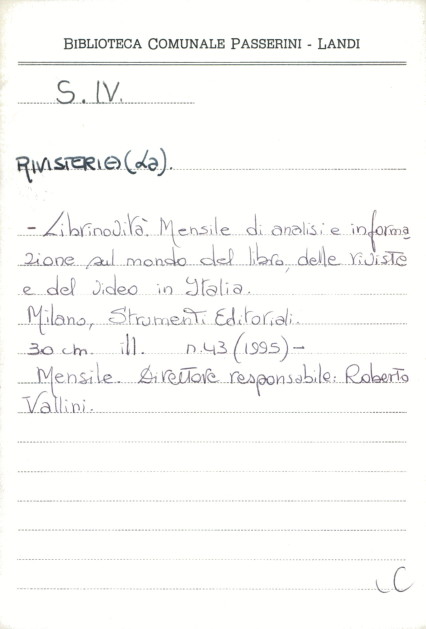 BIBLIOTECA COMUNALE PASSERINI - LANDI
S. IV.
RIVISTERIA (La).
- Librinovità. Mensile di analisi e informa
zione sul mondo del libro, delle riviste
e del video in Italia.
Milano, Strumenti Editoriali.
30 cm. ill. n. 43 (1995) -
Mensile. Direttore responsabile: Roberto
Vallini.